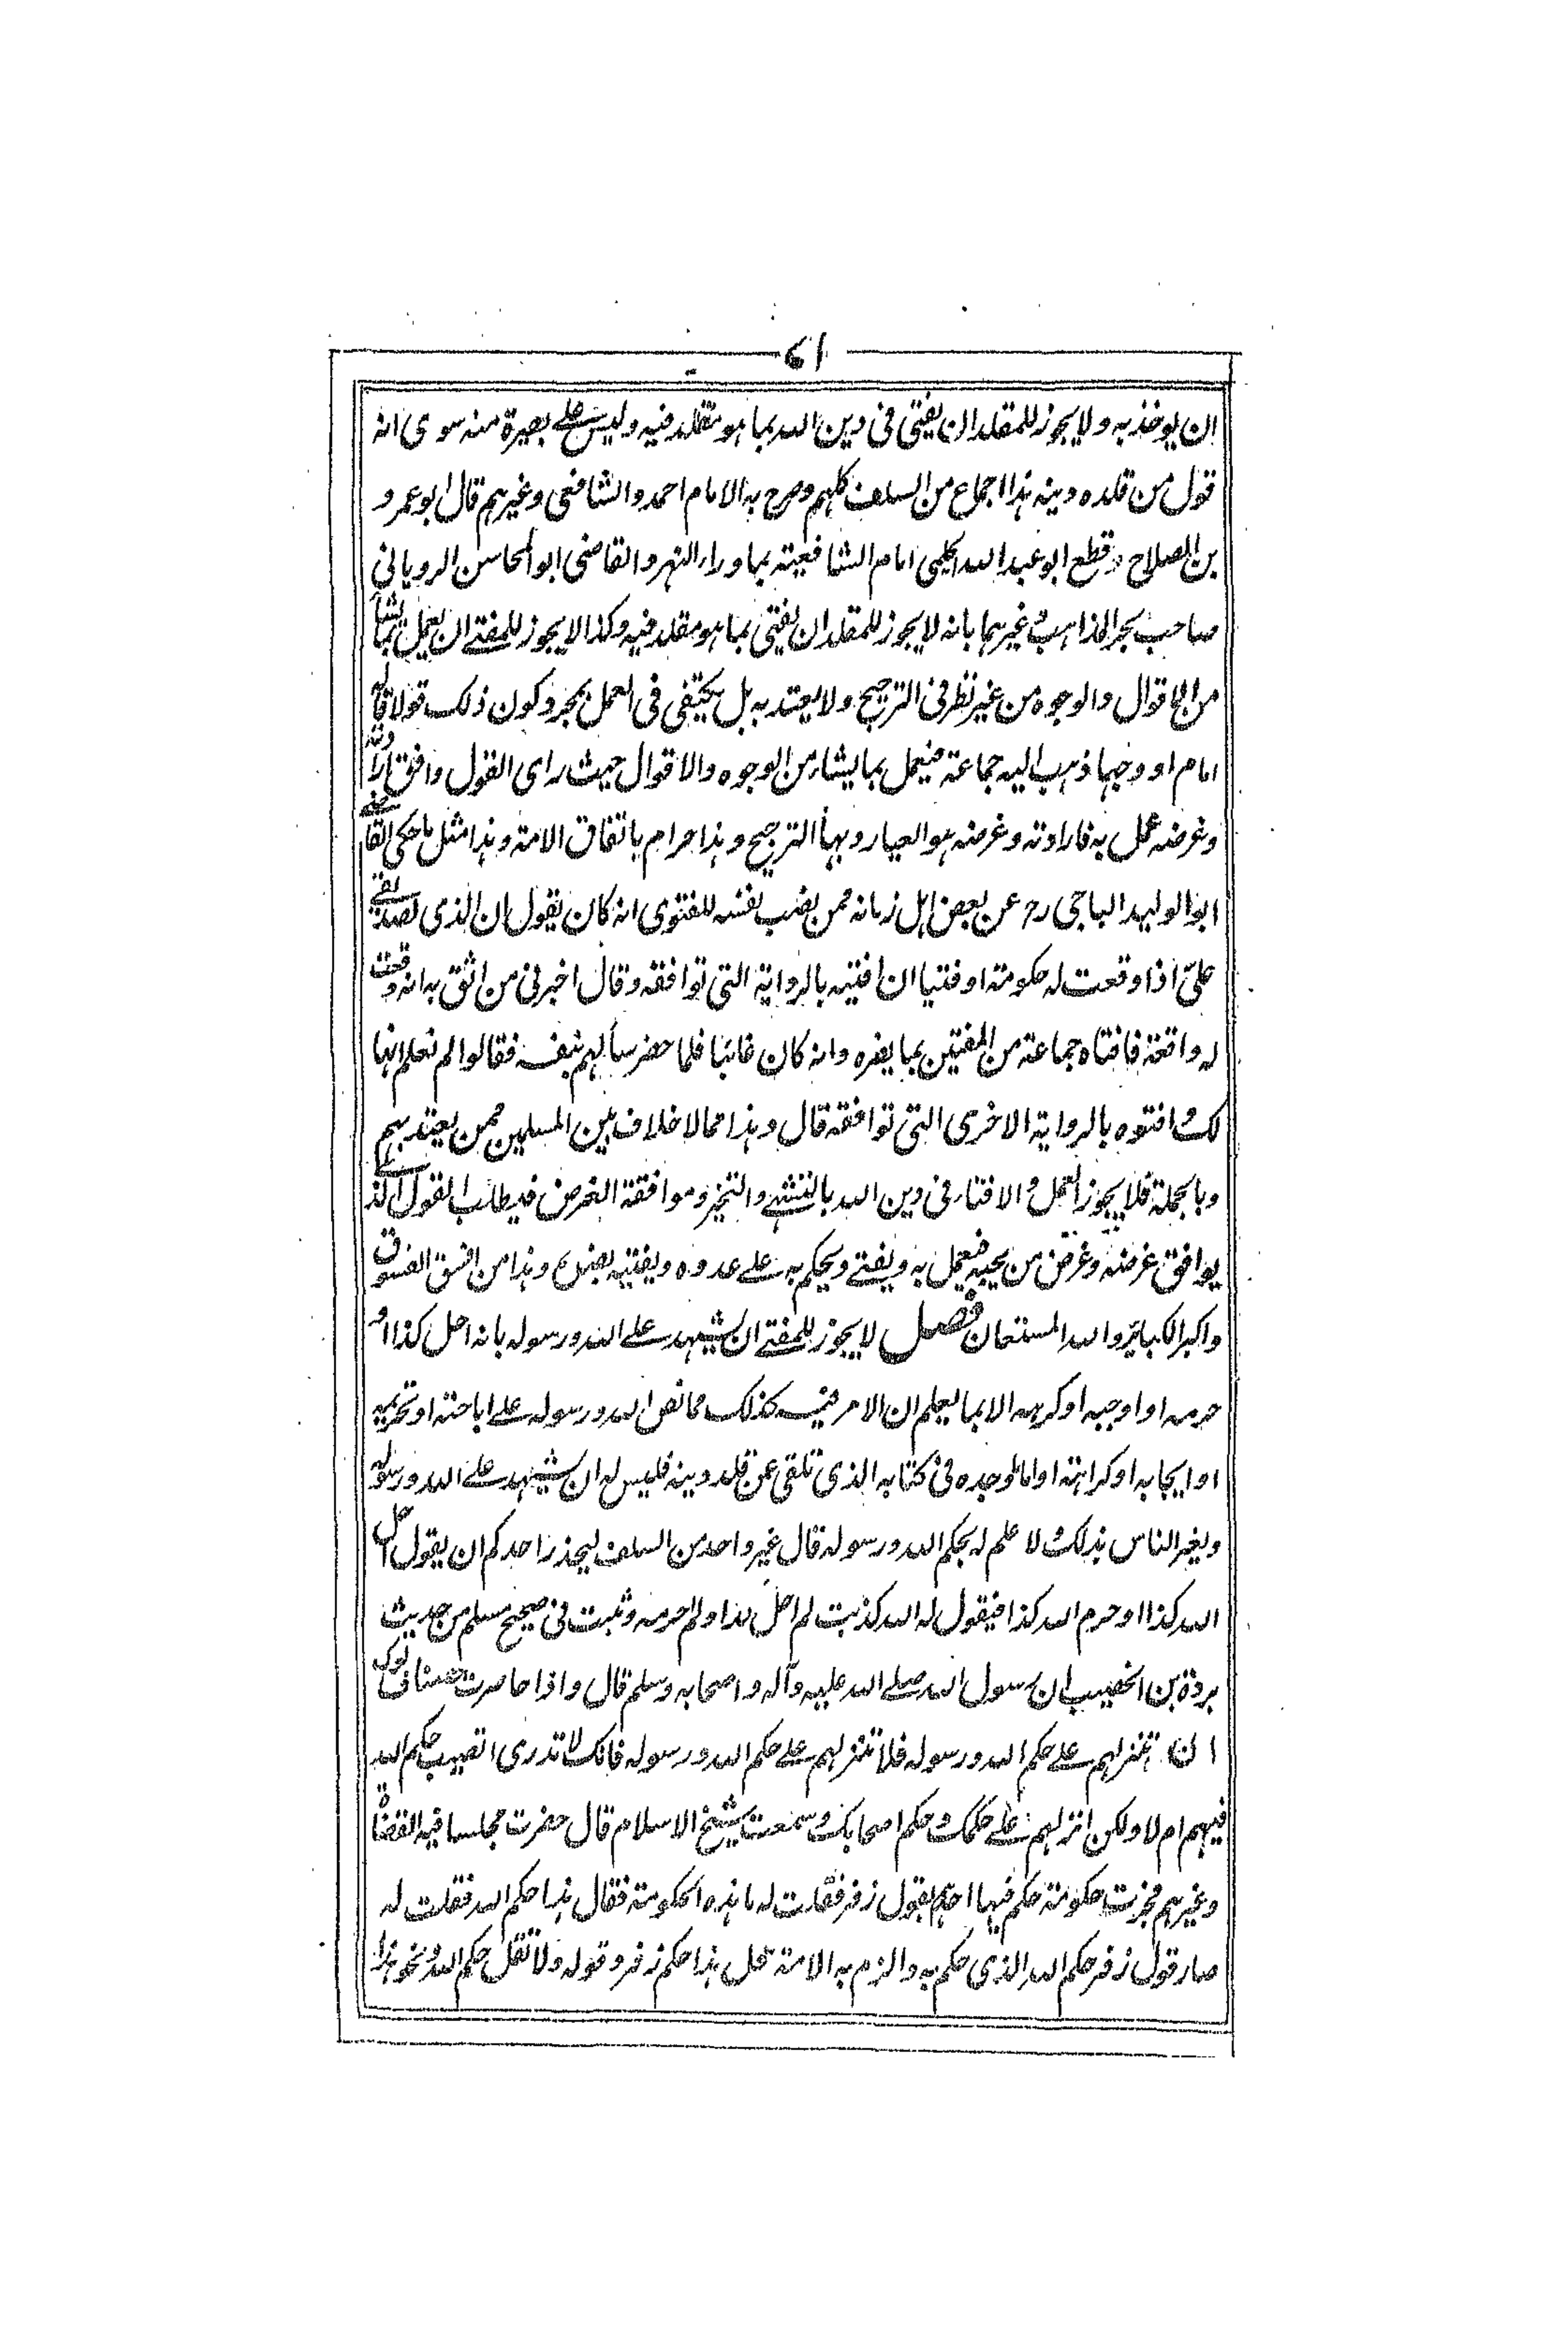 61
ان يوخذ به ولا يجوز للمقلد ان يفتى فى دين الله بما هو مقلد فيه وليس على بصيرة منه سوى انه
قول من قلده دينه هذا اجماع من السلف كلهم وصرح به الامام احمد والشافعى وغيرهم قال ابو عمرو
بن الصلاح وقطع ابو عبد الله الحليمى امام الشافعية بما وراء النهر والقاضى ابو المحاسن الرويانى
صاحب بحر المذاهب وغيرهما بانه لا يجوز للمقلد ان يفتى بما هو مقلد فيه وكذا لا يجوز للمفتى ان يعمل بما يشاء
من الاقوال والوجوه من غير نظر فى الترجيح ولا يعتد به بل يكتفى فى العمل بمجرد كون ذلك قولا قاله
امام او وجها ذهب اليه جماعة فيعمل بما يشاء من الوجوه والاقوال حيث راى القول وافق ارادته
وغرضه عمل به فارادته وغرضه هو العيار وبها الترجيح وهذا حرام باتفاق الامة وهذا مثل ما حكى القاضى
ابو الوليد الباجى رح عن بعض اهل زمانه ممن نصب نفسه للفتوى انه كان يقول ان الذى لصديقى
علىّ اذا وقعت له حكومة او فتيا ان افتيه بالرواية التى توافقه وقال اخبرنى من اثق به انه وقعت
له واقعة فافتاه جماعة من المفتين بما يضره وانه كان غائبا فلما حضر سألهم بنفسه فقالوا لم نعلم انها
لك وافتوه بالرواية الاخرى التى توافقه قال وهذا مما لا خلاف بين المسلمين ممن يعتد بهم
وبالجملة فلا يجوز العمل والافتاء فى دين الله بالتشهى والتخير وموافقة الغرض فيطلب القول الذى
يوافق غرضه وغرض من يحبه فيعمل به ويفتى ويحكم به على عدوه ويفتيه بضده وهذا من افسق الفسوق
واكبر الكبائر والله المستعان فصل لا يجوز للمفتى ان يشهد على الله ورسوله بانه احل كذا او
حرمه او اوجبه او كرهه الا بما يعلم ان الامر فيه كذلك مما نص الله ورسوله على اباحته او تحريمه
او ايجابه او كراهته او اما ما وجده فى كتابه الذى تلقى عمن قلد دينه فليس له ان يشهد على الله ورسوله
ويغر الناس بذلك ولا علم له بحكم الله ورسوله قال غير واحد من السلف ليحذر احدكم ان يقول احل
الله كذا او حرم الله كذا فيقول له الله كذبت لم احل كذا ولم احرمه وثبت فى صحيح مسلم من حديث
بردة بن الخصيب ان رسول الله صلى الله عليه وآله واصحابه وسلم قال واذا حاصرت حصنا فسألوك
ان تنزلهم على حكم الله ورسوله فلا تنزلهم على حكم الله ورسوله فانك لا تدرى اتصيب حكم الله
فيهم ام لا ولكن انزلهم على حكمك وحكم اصحابك وسمعت شيخ الاسلام قال حضرت مجلسا فيه القضاة
وغيرهم فجرت حكومة حكم فيها احدهم بقول زفر فقلت له ما هذه الحكومة فقال هذا حكم الله فقلت له
صار قول زفر حكم الله الذى حكم به والزم به الامة قل هذا حكم زفر وقوله ولا تقل حكم الله ونحو هذا